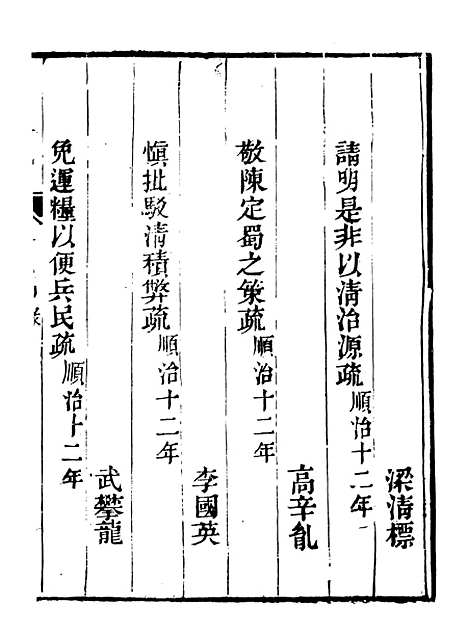 梁清標
請明是非以清治源疏順治十二年
高辛胤
敬陳定蜀之策疏順治十二年
李國英
愼批駁清積弊疏順治十二年
武攀龍
免運糧以便兵民疏順治十二年